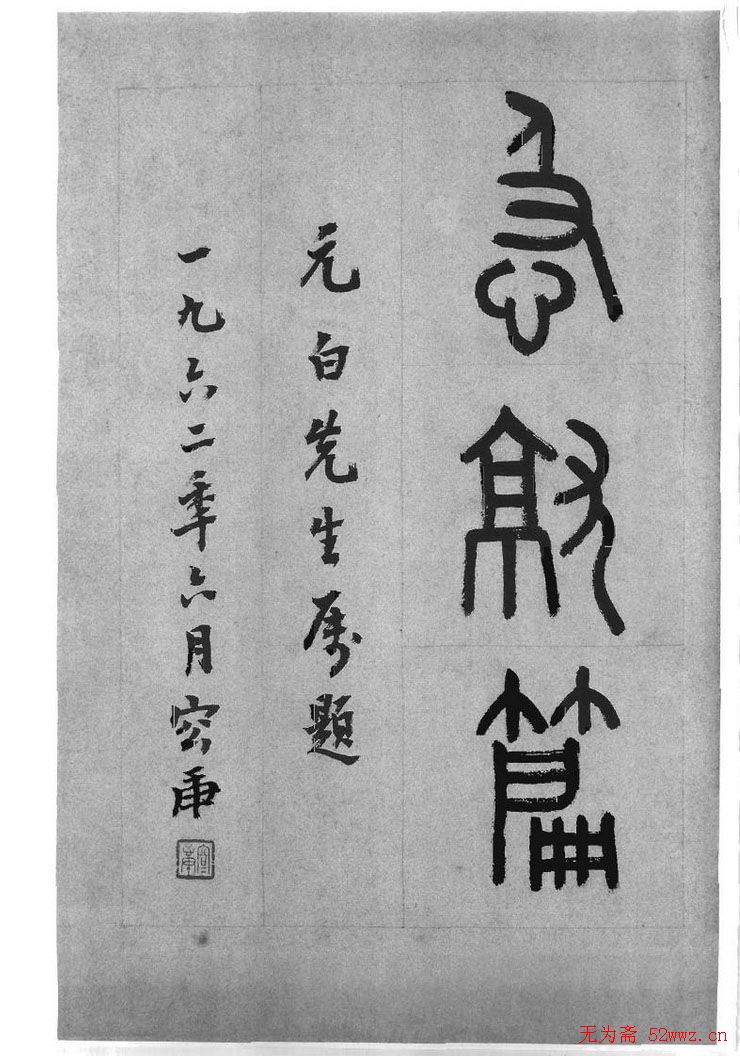 急就篇
元白先生属題
一九六二秊六月容庚
容庚
无为斋 52wwz.cn